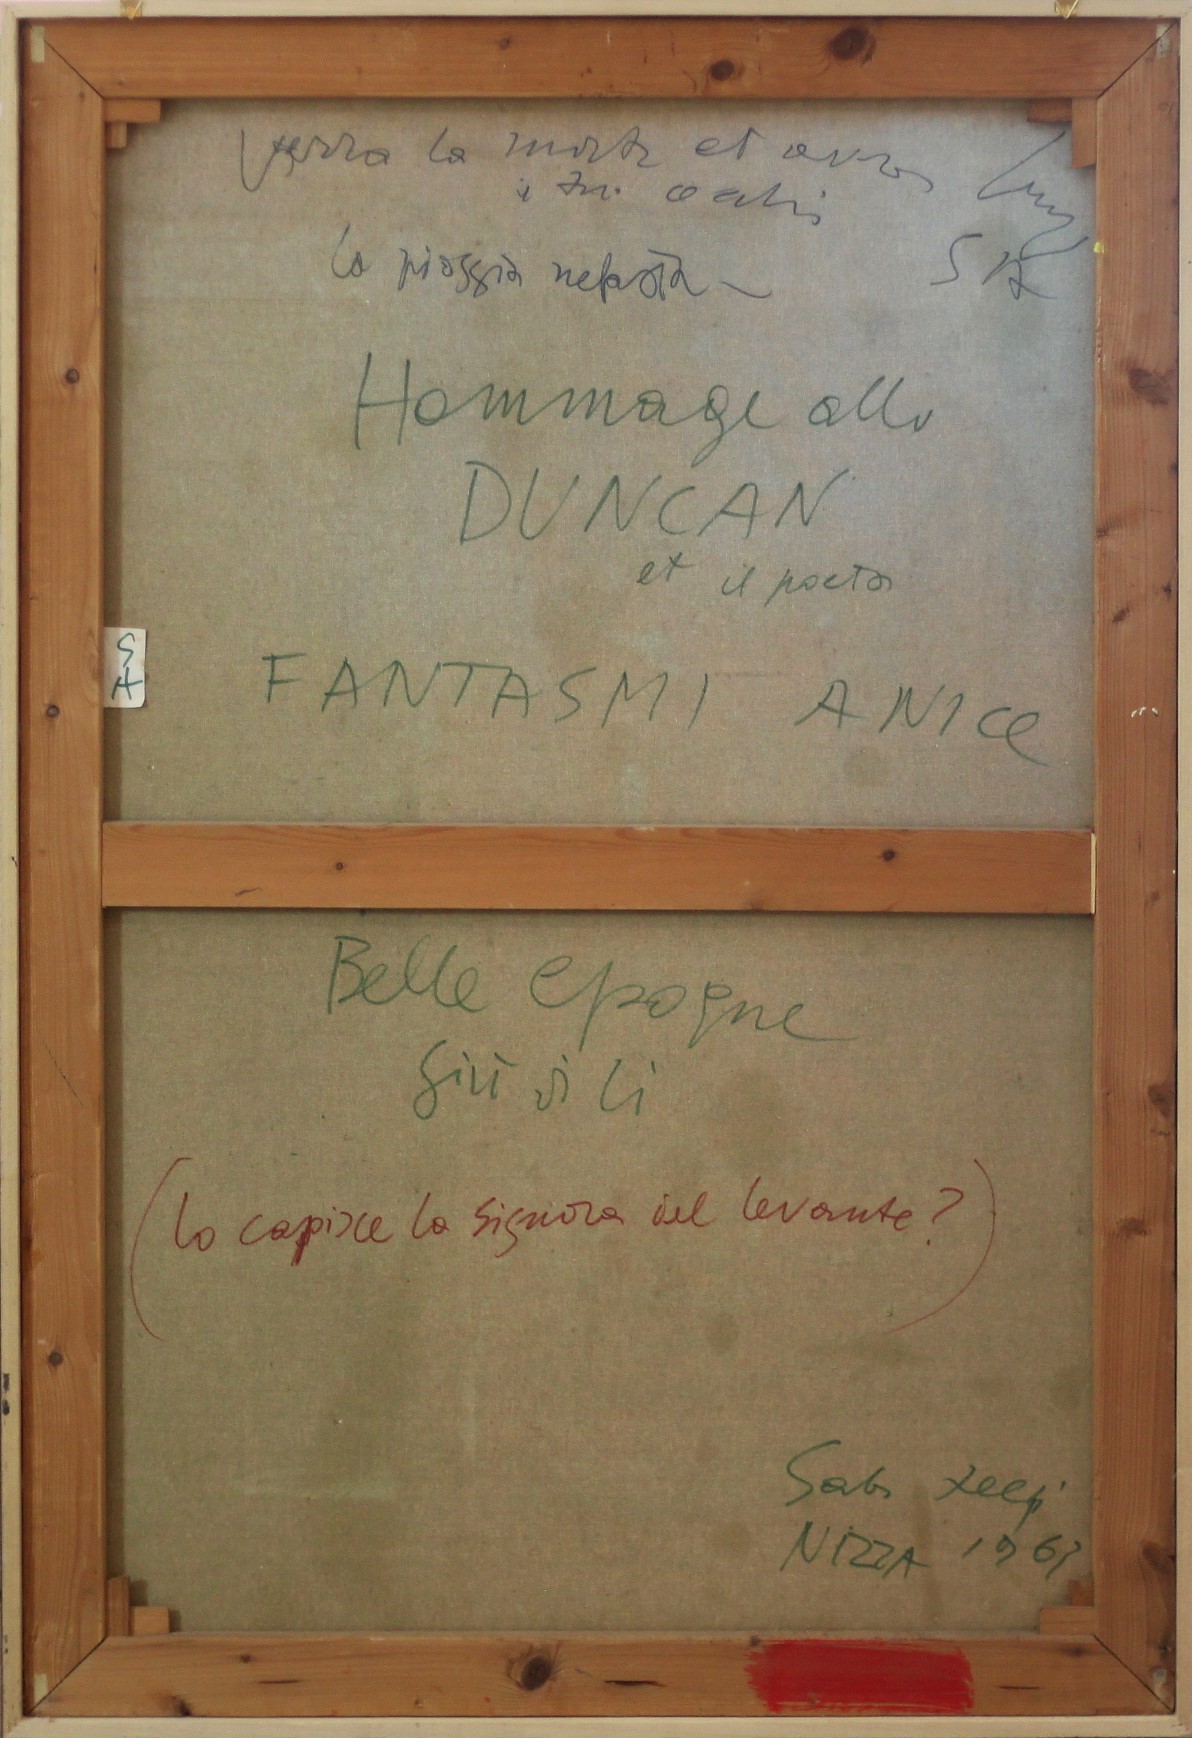 Verra la morte et avra
i tuoi occhi
la pioggia nefasta
SA
Hommage alla
DUNCAN
et il poeta
SA
FANTASMI A NICE
Belle epoque
giù di lì
(lo capisce la signora del levante?)
NIZZA 1963